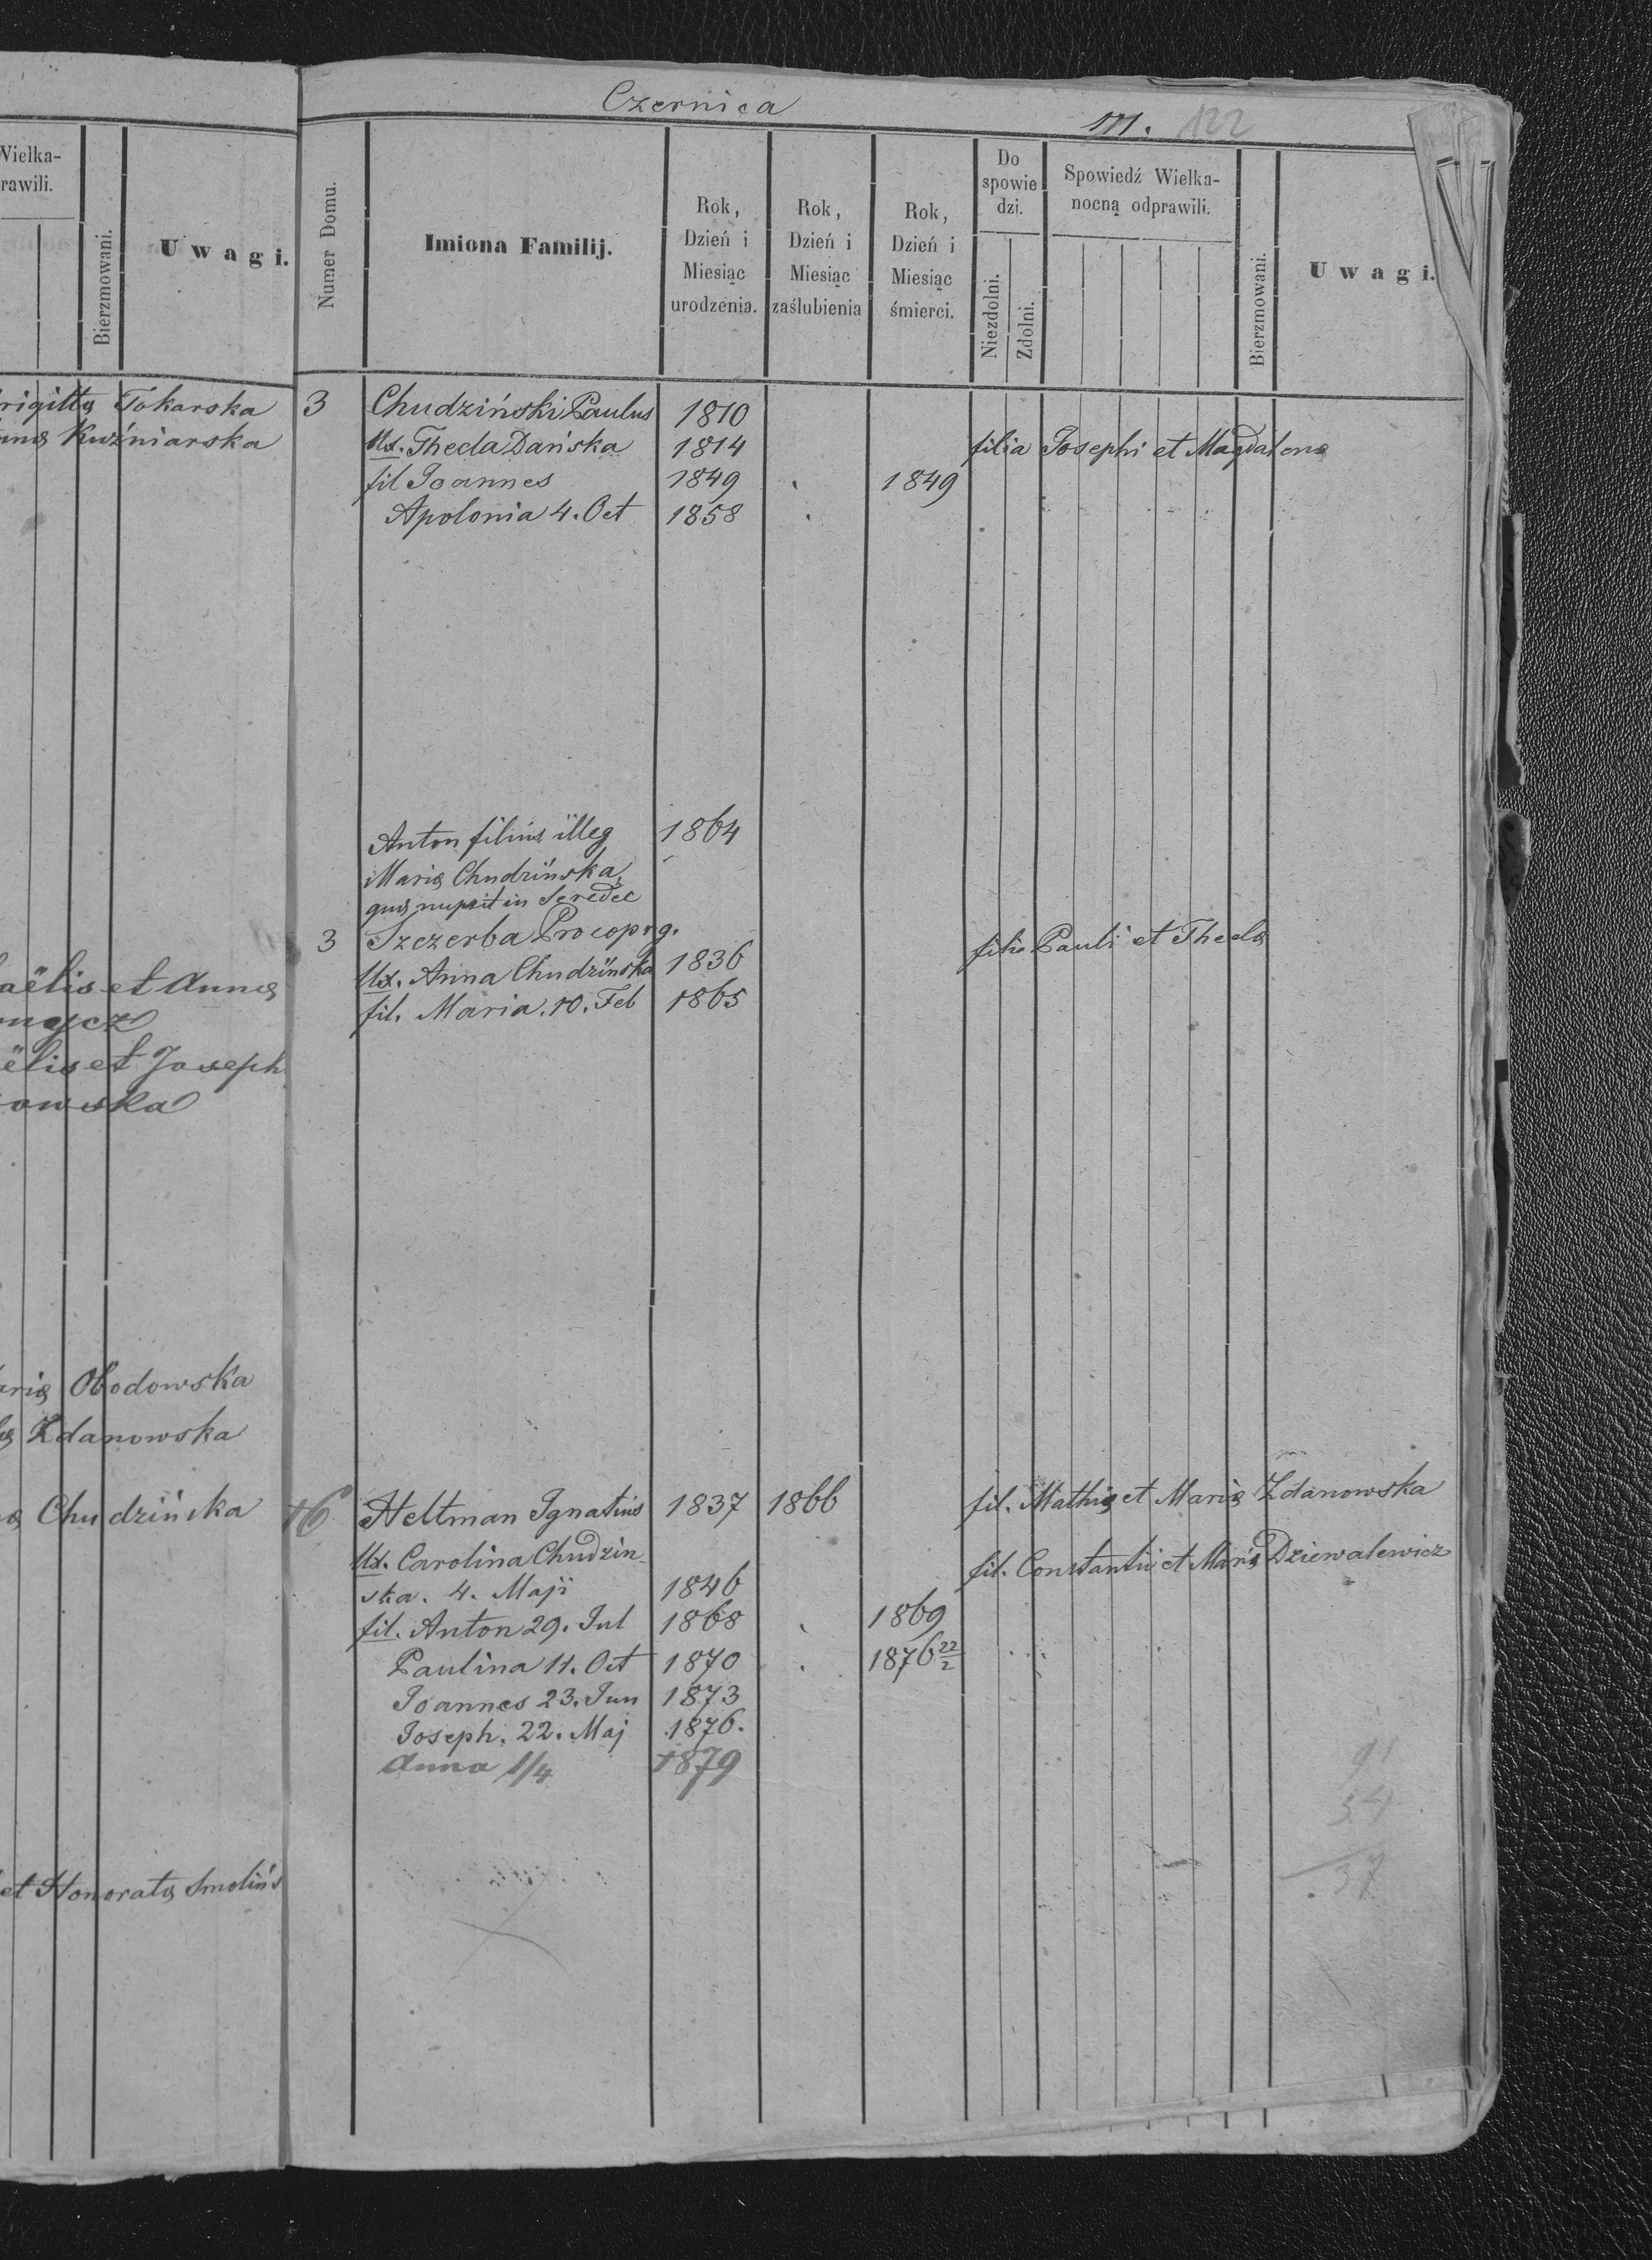 Wielka-
rawili.
Bierzmowani.
Uwagi.
Tokarska
Kuźniarska
et Annę
et Joseph
Obodowska
Zdanowska
Chudzińska
et Honoratę Smolińs
Czernica
111. 122
Numer Domu.
Imiona Familij.
Rok,
Dzień i
Miesiąc
urodzenia.
Rok,
Dzień i
Miesiąc
zaślubienia
Rok,
Dzień i
Miesiąc
śmierci.
Do
spowie
dzi.
Niezdolni.
Zdolni.
Spowiedź Wielka-
nocną odprawili.
Bierzmowani.
Uwagi.
3 Chudziński Paulus 1810
Ux. Thecla Dańska 1814 filia Josephi et Magdalenę
fil Joannes 1849 1849
Apolonia 4. Oct 1858
Anton filius illeg 1864
Marię Chudzińska,
quę nupsit in Seredec
3 Szczerba Procop r g. filię Pauli et Theclę
Ux. Anna Chudzińska 1836
fil. Maria. 10. Feb 1865
16 Heltman Ignatius 1837 1866 fil. Mathię et Marię Zdanowska
Ux. Carolina Chudzin- fil. Constantii et Marię Dziewalewicz
ska. 4. Maji 1846
fil. Anton 29. Jul 1868 1869
Paulina 11. Oct 1870 1876 22/2
Joannes 23. Jun 1873
Joseph. 22. Maj 1876.
Anna 1/4 1879
91
54
37